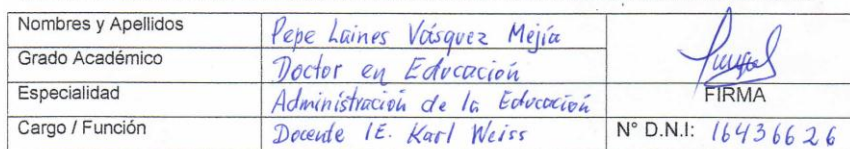 Nombres y Apellidos Pepe Laines Vásquez Mejía
Grado Académico Doctor en Educación
Especialidad Administración de la Educación FIRMA
Cargo / Función Docente IE. Karl Weiss N° D.N.I: 16436626